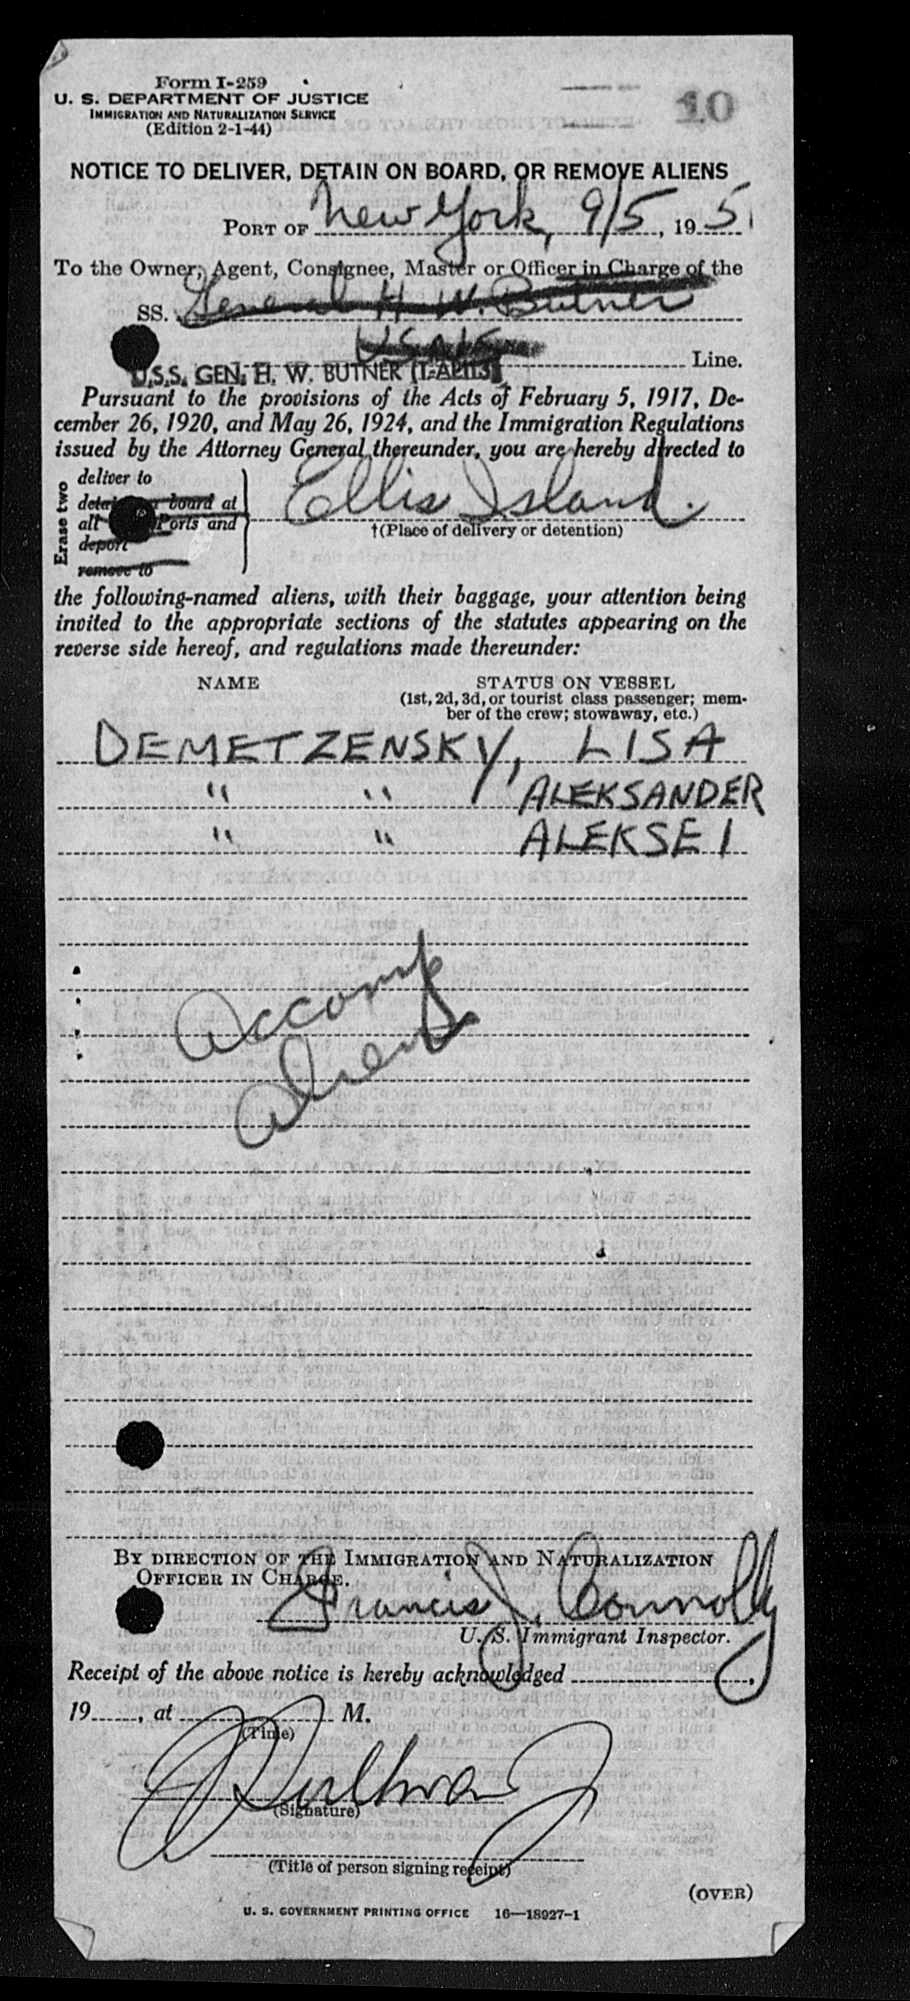 Form I-259
U. S. DEPARTMENT OF JUSTICE
IMMIGRATION AND NATURALIZATION SERVICE
(Edition 2-1-44)
10
NOTICE TO DELIVER, DETAIN ON BOARD, OR REMOVE ALIENS
PORT OF New York, 9/5, 1951
To the Owner, Agent, Consignee, Master or Officer in Charge of the
SS. General H. W. Butner
U.S.S. GEN. H. W. BUTNER Line.
Pursuant to the provisions of the Acts of February 5, 1917, De-
cember 26, 1920, and May 26, 1924, and the Immigration Regulations
issued by the Attorney General thereunder, you are hereby directed to
Erase two
deliver to
board at
all Ports and
deport
remove to
Ellis Island.
†(Place of delivery or detention)
the following-named aliens, with their baggage, your attention being
invited to the appropriate sections of the statutes appearing on the
reverse side hereof, and regulations made thereunder:
NAME STATUS ON VESSEL
(1st, 2d, 3d, or tourist class passenger; mem-
ber of the crew; stowaway, etc.)
DEMETZENSKY, LISA
" " ALEKSANDER
" " ALEKSEI
Accomp
Aliens
BY DIRECTION OF THE IMMIGRATION AND NATURALIZATION
OFFICER IN CHARGE.
Francis J. Connolly
U. S. Immigrant Inspector.
Receipt of the above notice is hereby acknowledged
19, at M.
(Time)
(Signature)
(Title of person signing receipt)
(OVER)
U. S. GOVERNMENT PRINTING OFFICE 16—18927-1